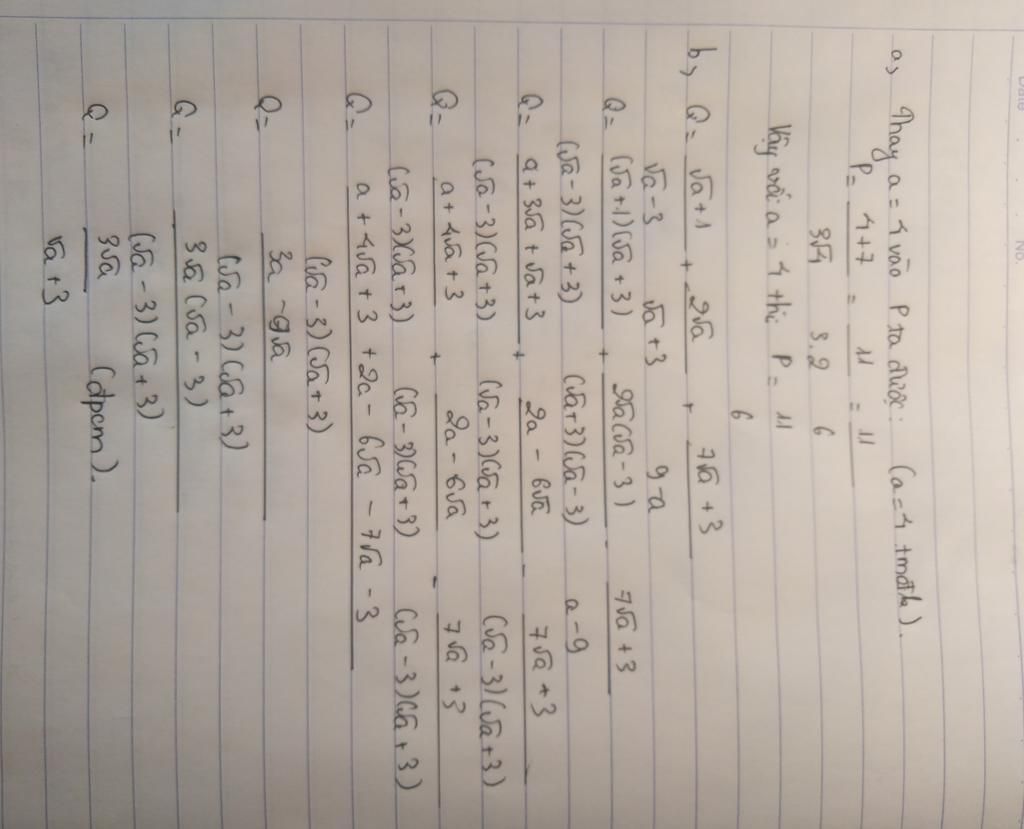 Date No.
a, Thay a = 4 vào P ta được: (a = 4 tmđk).
P = (4+7)/(3√4) = 11/(3.2) = 11/6
Vậy với a = 4 thì P = 11/6
b, Q = (√a+1)/(√a-3) + 2√a/(√a+3) + (7√a+3)/(9-a)
Q = (√a+1)(√a+3)/((√a-3)(√a+3)) + 2√a(√a-3)/((√a+3)(√a-3)) - (7√a+3)/(a-9)
Q = (a+3√a+√a+3)/((√a-3)(√a+3)) + (2a-6√a)/((√a-3)(√a+3)) - (7√a+3)/((√a-3)(√a+3))
Q = (a+4√a+3)/((√a-3)(√a+3)) + (2a-6√a)/((√a-3)(√a+3)) - (7√a+3)/((√a-3)(√a+3))
Q = (a+4√a+3+2a-6√a-7√a-3)/((√a-3)(√a+3))
Q = (3a-9√a)/((√a-3)(√a+3))
Q = 3√a(√a-3)/((√a-3)(√a+3))
Q = 3√a/(√a+3) (đpcm).